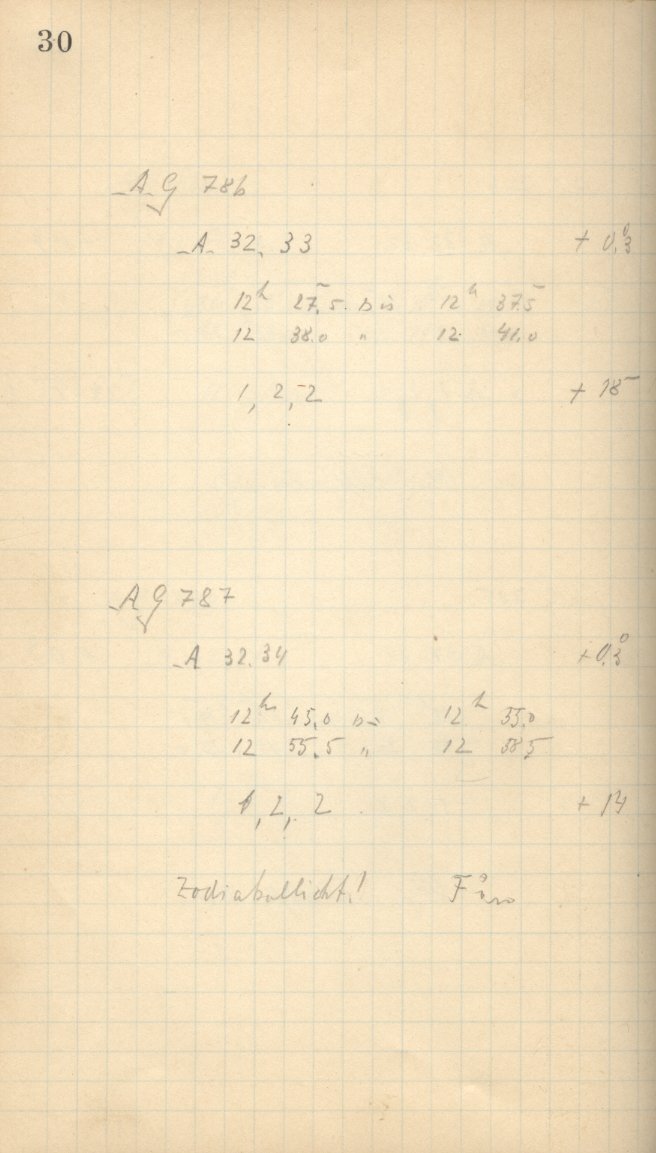 30
A G 786
A 32, 33 + 0,°3
12h 27,5 bis 12h 37,5
12 38.0 " 12 41,0
1, 2, 2 + 18
A G 787
A 32.34 + 0,°3
12h 45,0 bis 12h 55,0
12 55,5 " 12 58,5
1, 2, 2 + 14
Zodiakallicht!